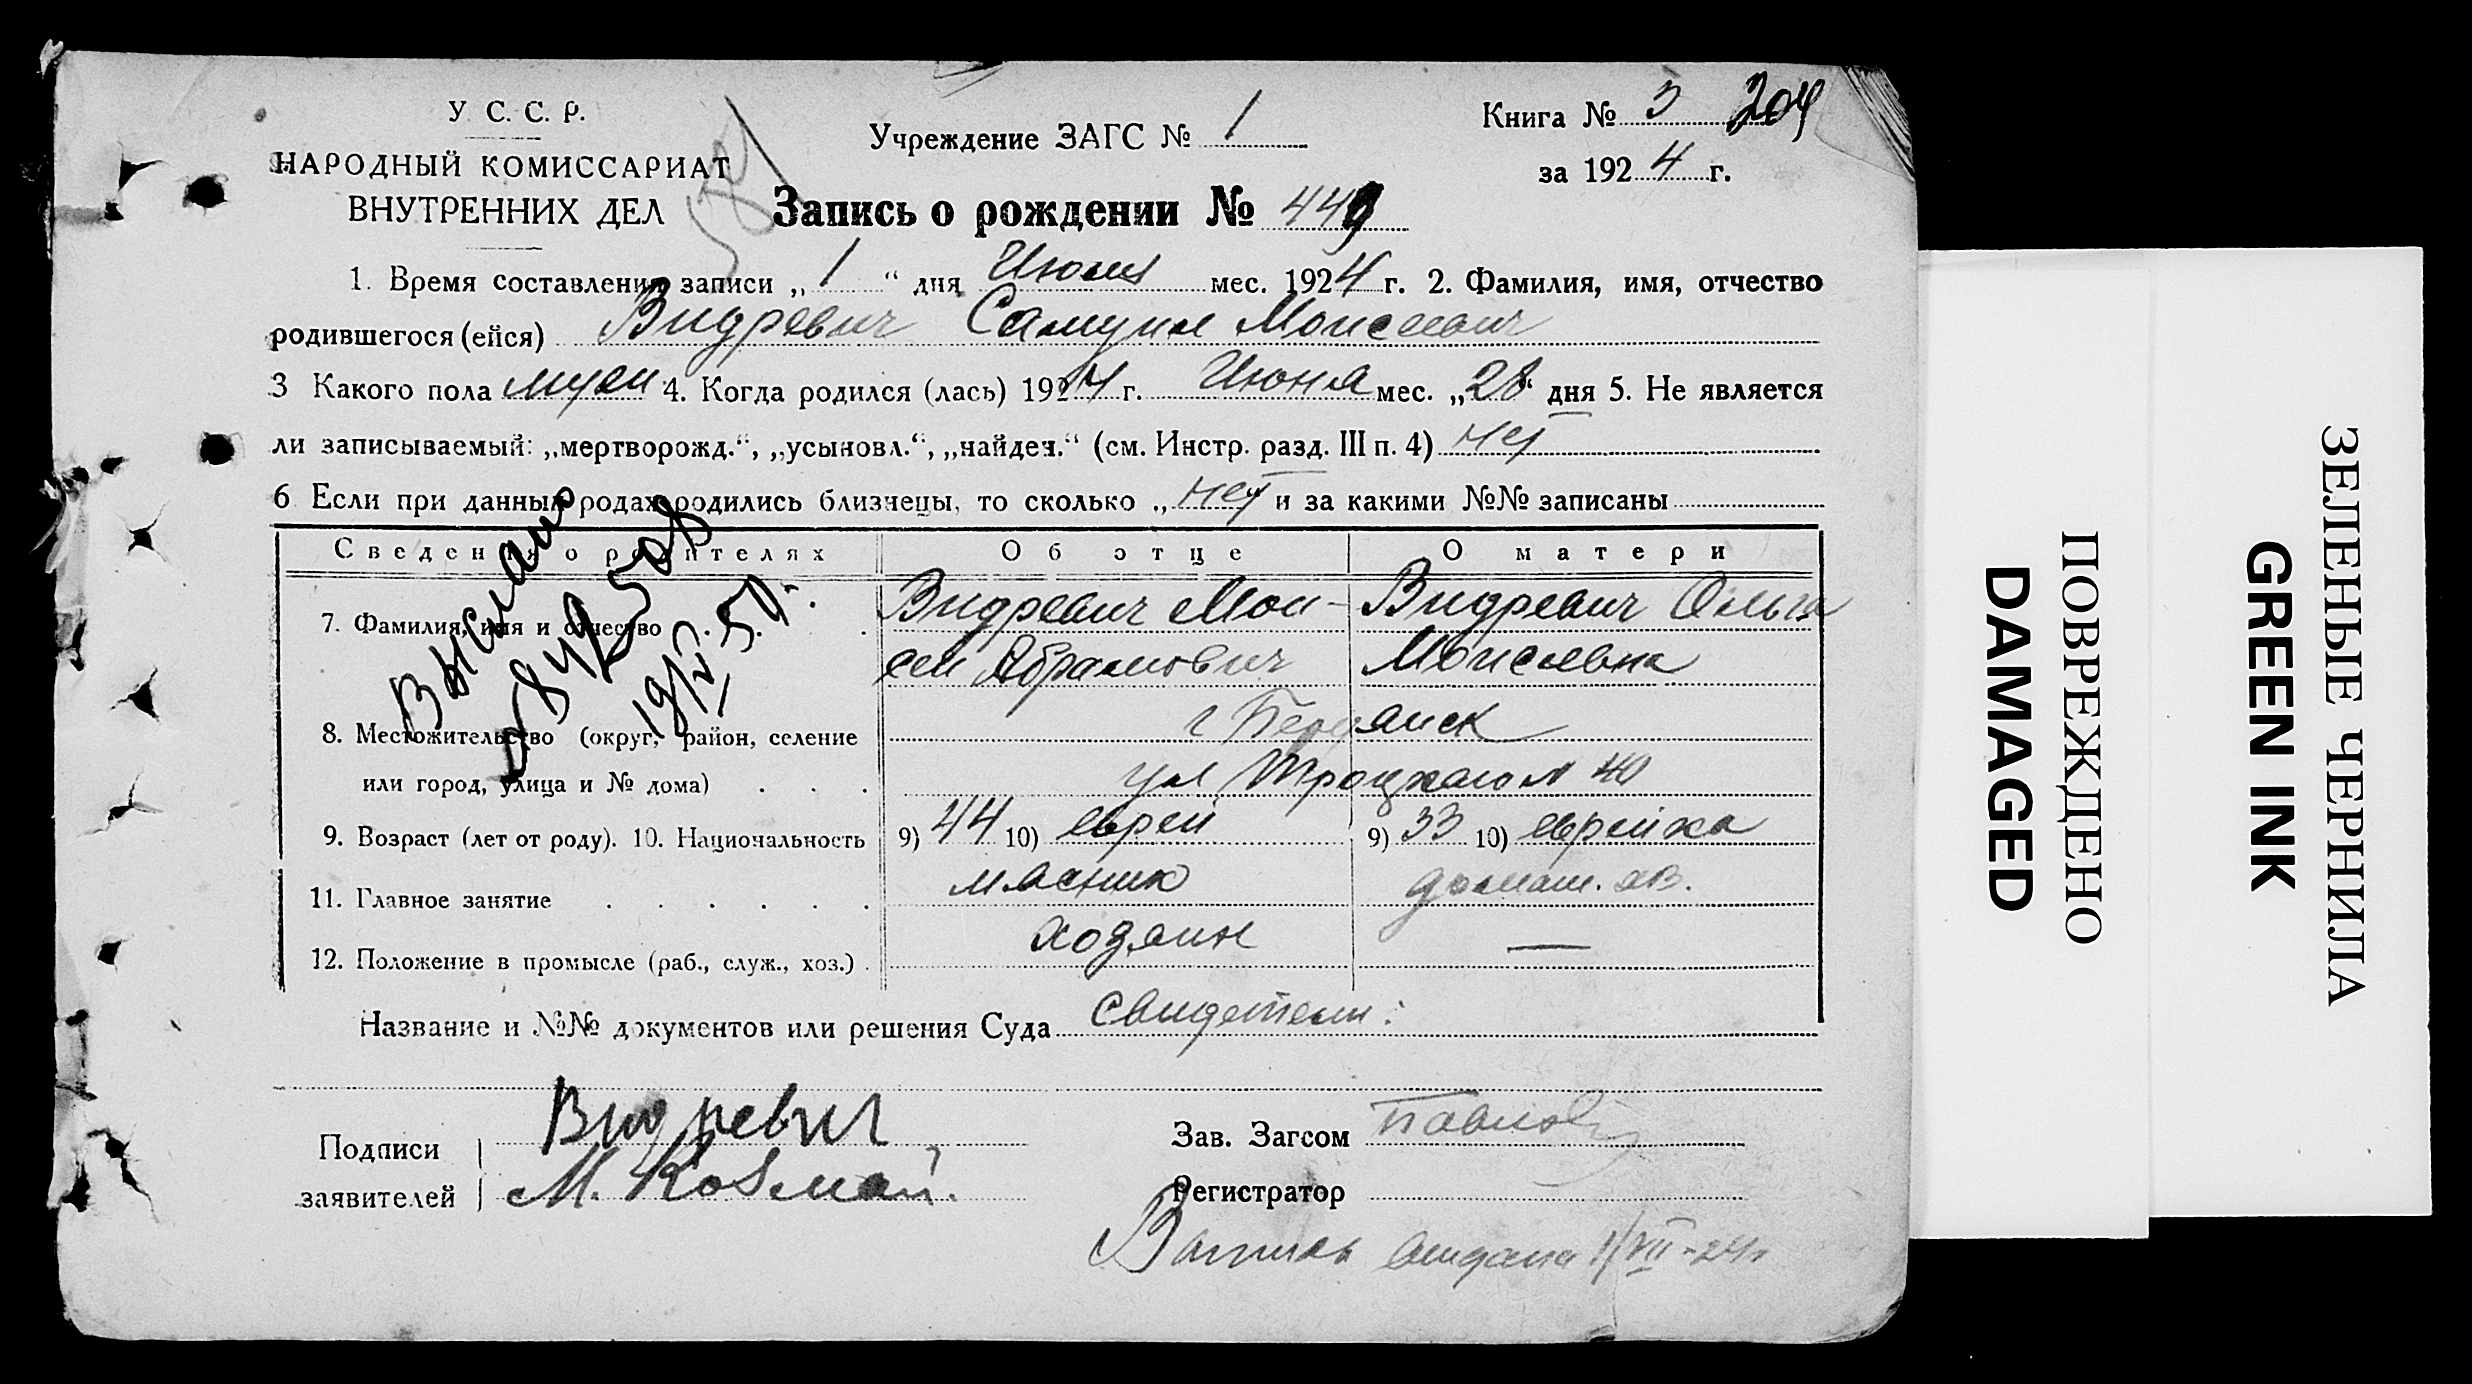 У. С. С. Р.
НАРОДНЫЙ КОМИССАРИАТ
ВНУТРЕННИХ ДЕЛ
Учреждение ЗАГС № 1
Книга № 3 204
за 1924 г.
Запись о рождении № 449
1. Время составления записи „ 1 “ дня Июля мес. 1924 г. 2. Фамилия, имя, отчество
родившегося (ейся) Видревич Самуил Моисеевич
3 Какого пола муж 4. Когда родился (лась) 1924 г. Июня мес. „28“ дня 5. Не является
ли записываемый: „мертворожд.“, „усыновл.“, „найден.“ (см. Инстр. разд. III п. 4) нет
6 Если при данных родах родились близнецы, то сколько „ нет и за какими №№ записаны
Сведения о родителях Об отце О матери
7. Фамилия, имя и отчество Видревич Мои- Видревич Ольга
сей Абрамович Моисеевна
8. Местожительство (округ, район, селение г Бердянск
или город, улица и № дома) ул Троцкого № 40
9. Возраст (лет от роду). 10. Национальность 9) 44 10) еврей 9) 33 10) еврейка
11. Главное занятие мясник домаш. хоз.
12. Положение в промысле (раб., служ., хоз.) хозяин —
Выслано
19/V-50.
Название и №№ документов или решения Суда свидетели:
Подписи Видревич
заявителей М. Козман.
Зав. Загсом Павлов
Регистратор
Запись выдана 1/VII-24 г
ПОВРЕЖДЕНО
DAMAGED
ЗЕЛЕНЫЕ ЧЕРНИЛА
GREEN INK